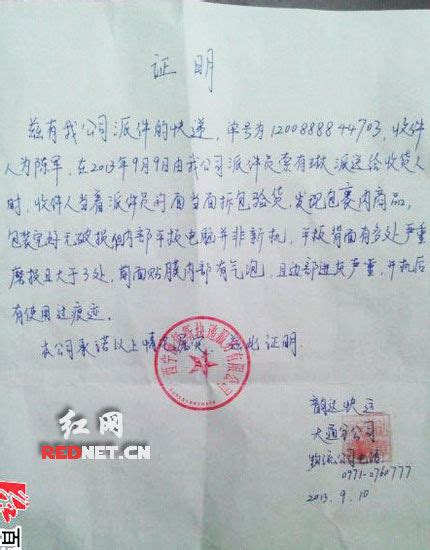 证明
兹有我公司派件的快递，单号为1200888844703，收件
人为陈军，在2013年9月9日由我公司派件员索有琳派送给收货人
时，收件人当着派件员的面当面拆包验货，发现包裹内商品，
包装完好无破损但内部平板电脑并非新机，平板背面有多处严重
磨损且大于3处，前面贴膜内部有气泡，且边部进灰严重，开机后
有使用过痕迹。
本公司承诺以上情况属实，特此证明。
韵达快运
大通分公司
物流公司电话
0971-2760777
2013.9.10
红网
REDNET.CN